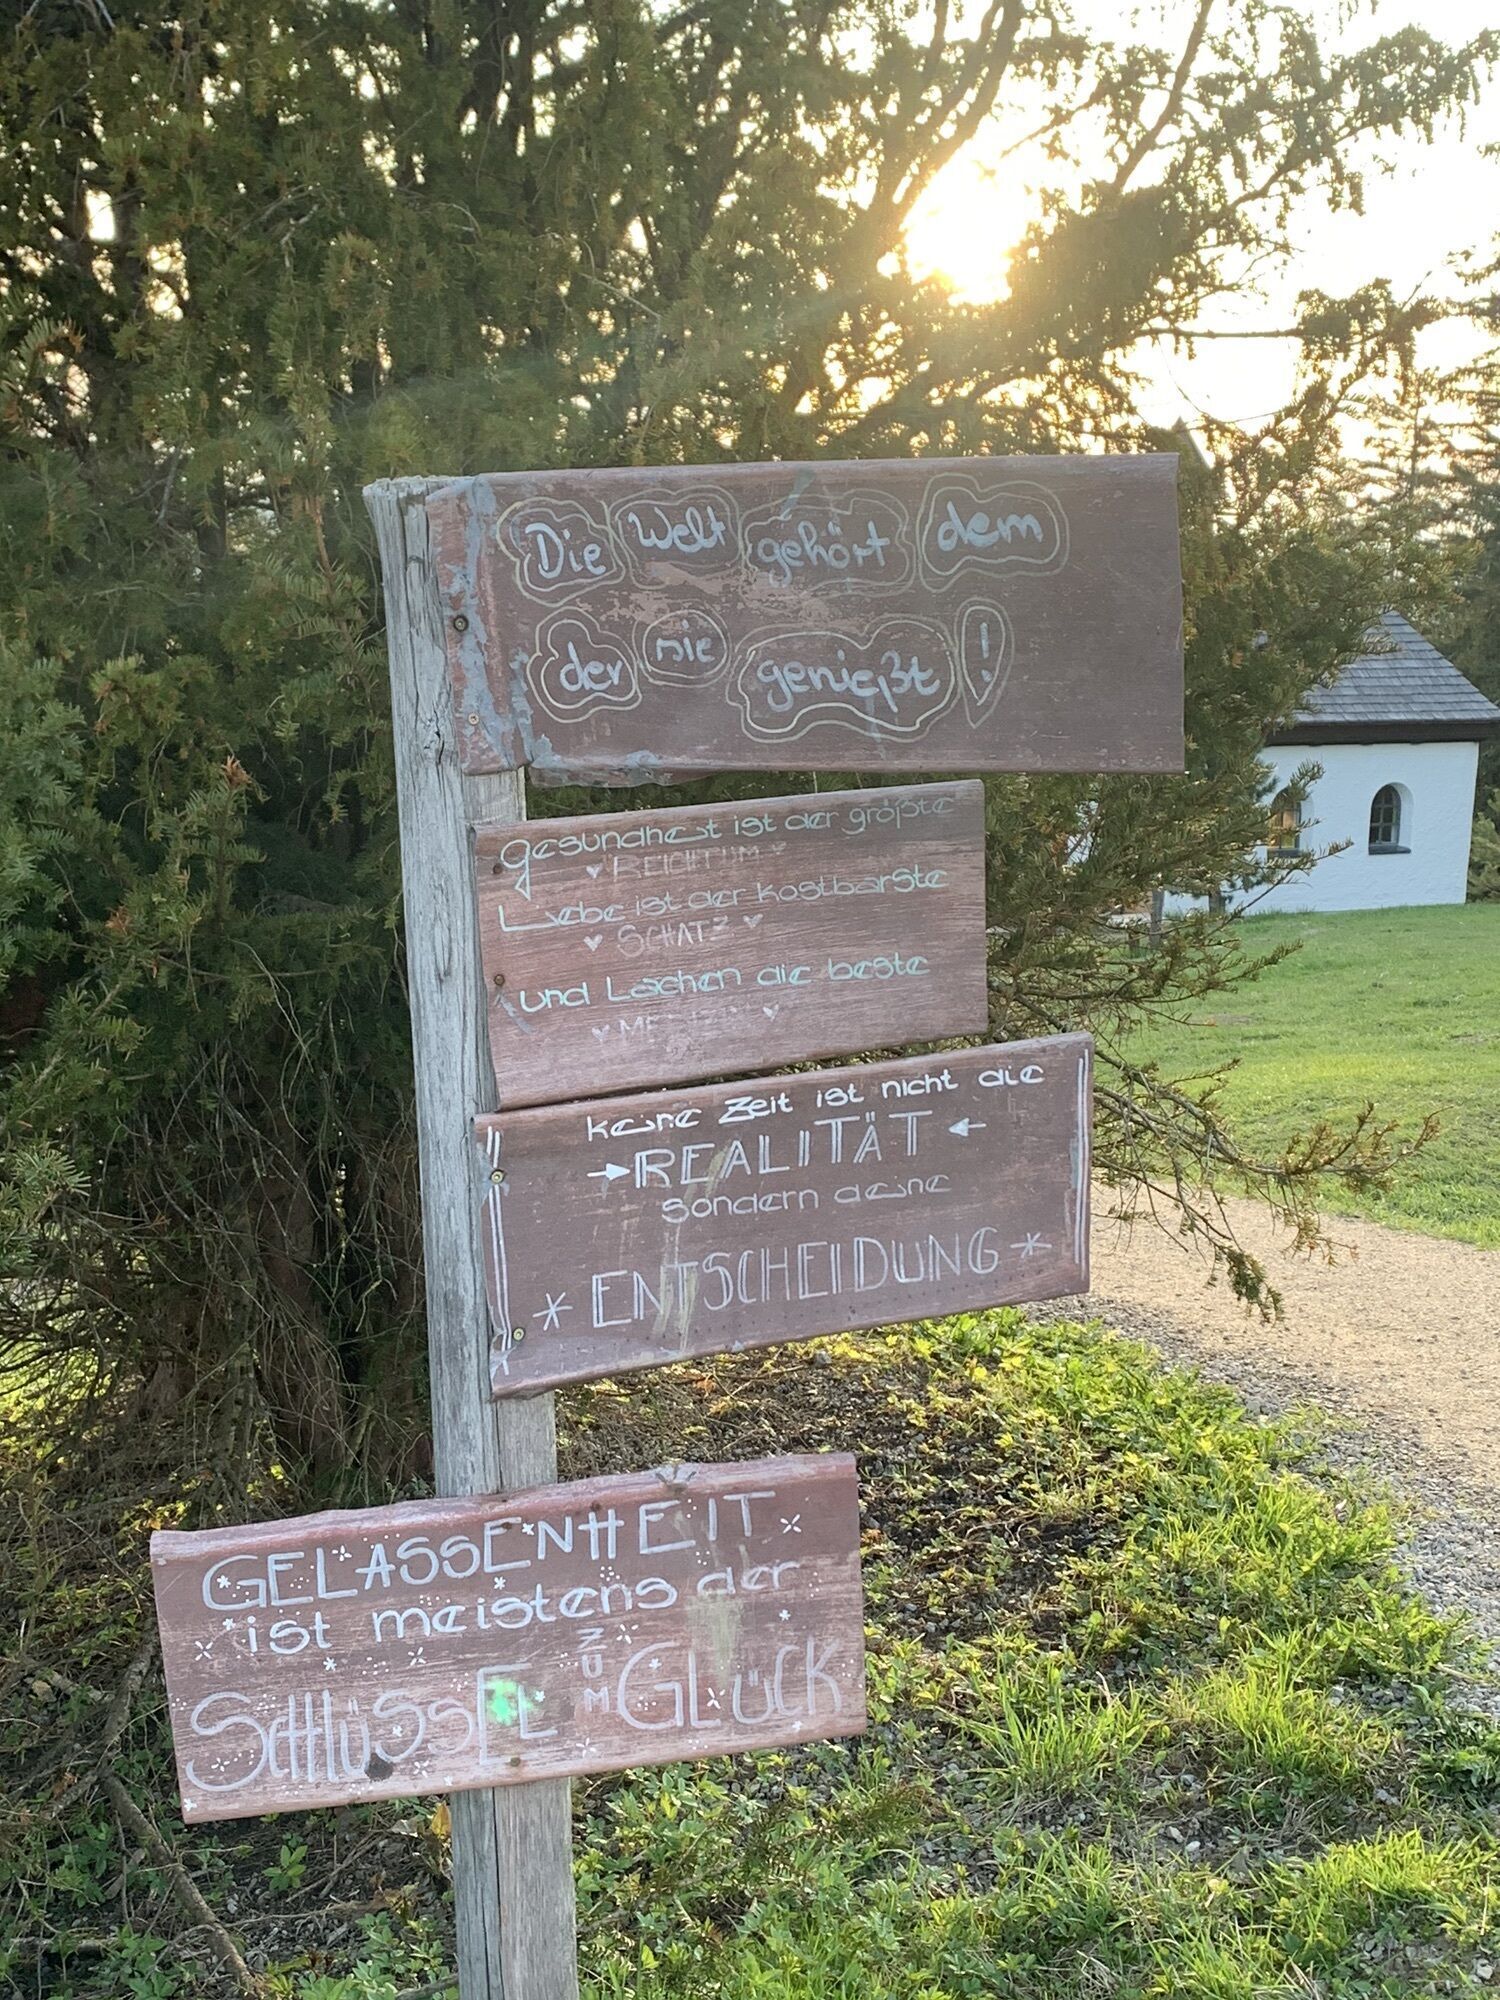 Die Welt gehört dem
der nie genießt!
Gesundheit ist der größte
♥ REICHTUM ♥
Liebe ist der kostbarste
♥ SCHATZ ♥
und Lachen die beste
♥ ♥
keine Zeit ist nicht die
→ REALITÄT ←
sondern deine
* ENTSCHEIDUNG *
GELASSENHEIT
ist meistens der
SCHLÜSSEL ZUM GLÜCK